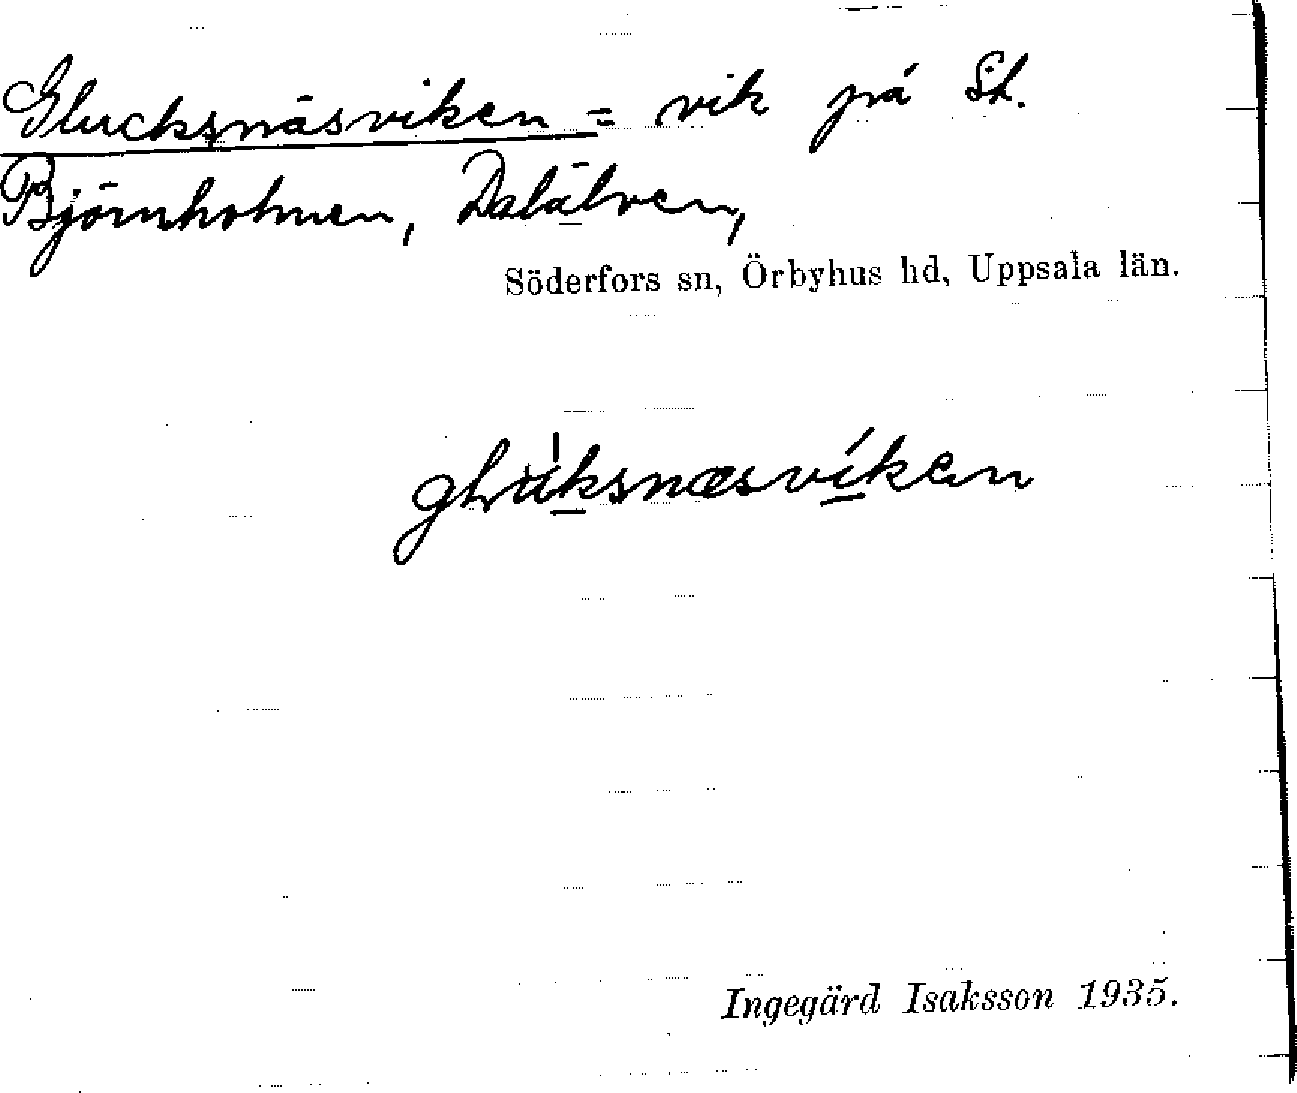 Glucksnäsviken = vik på St.
Björnholmen, Dalälven,
Söderfors sn, Örbyhus hd, Uppsala län.
Ingegärd Isaksson 1935.